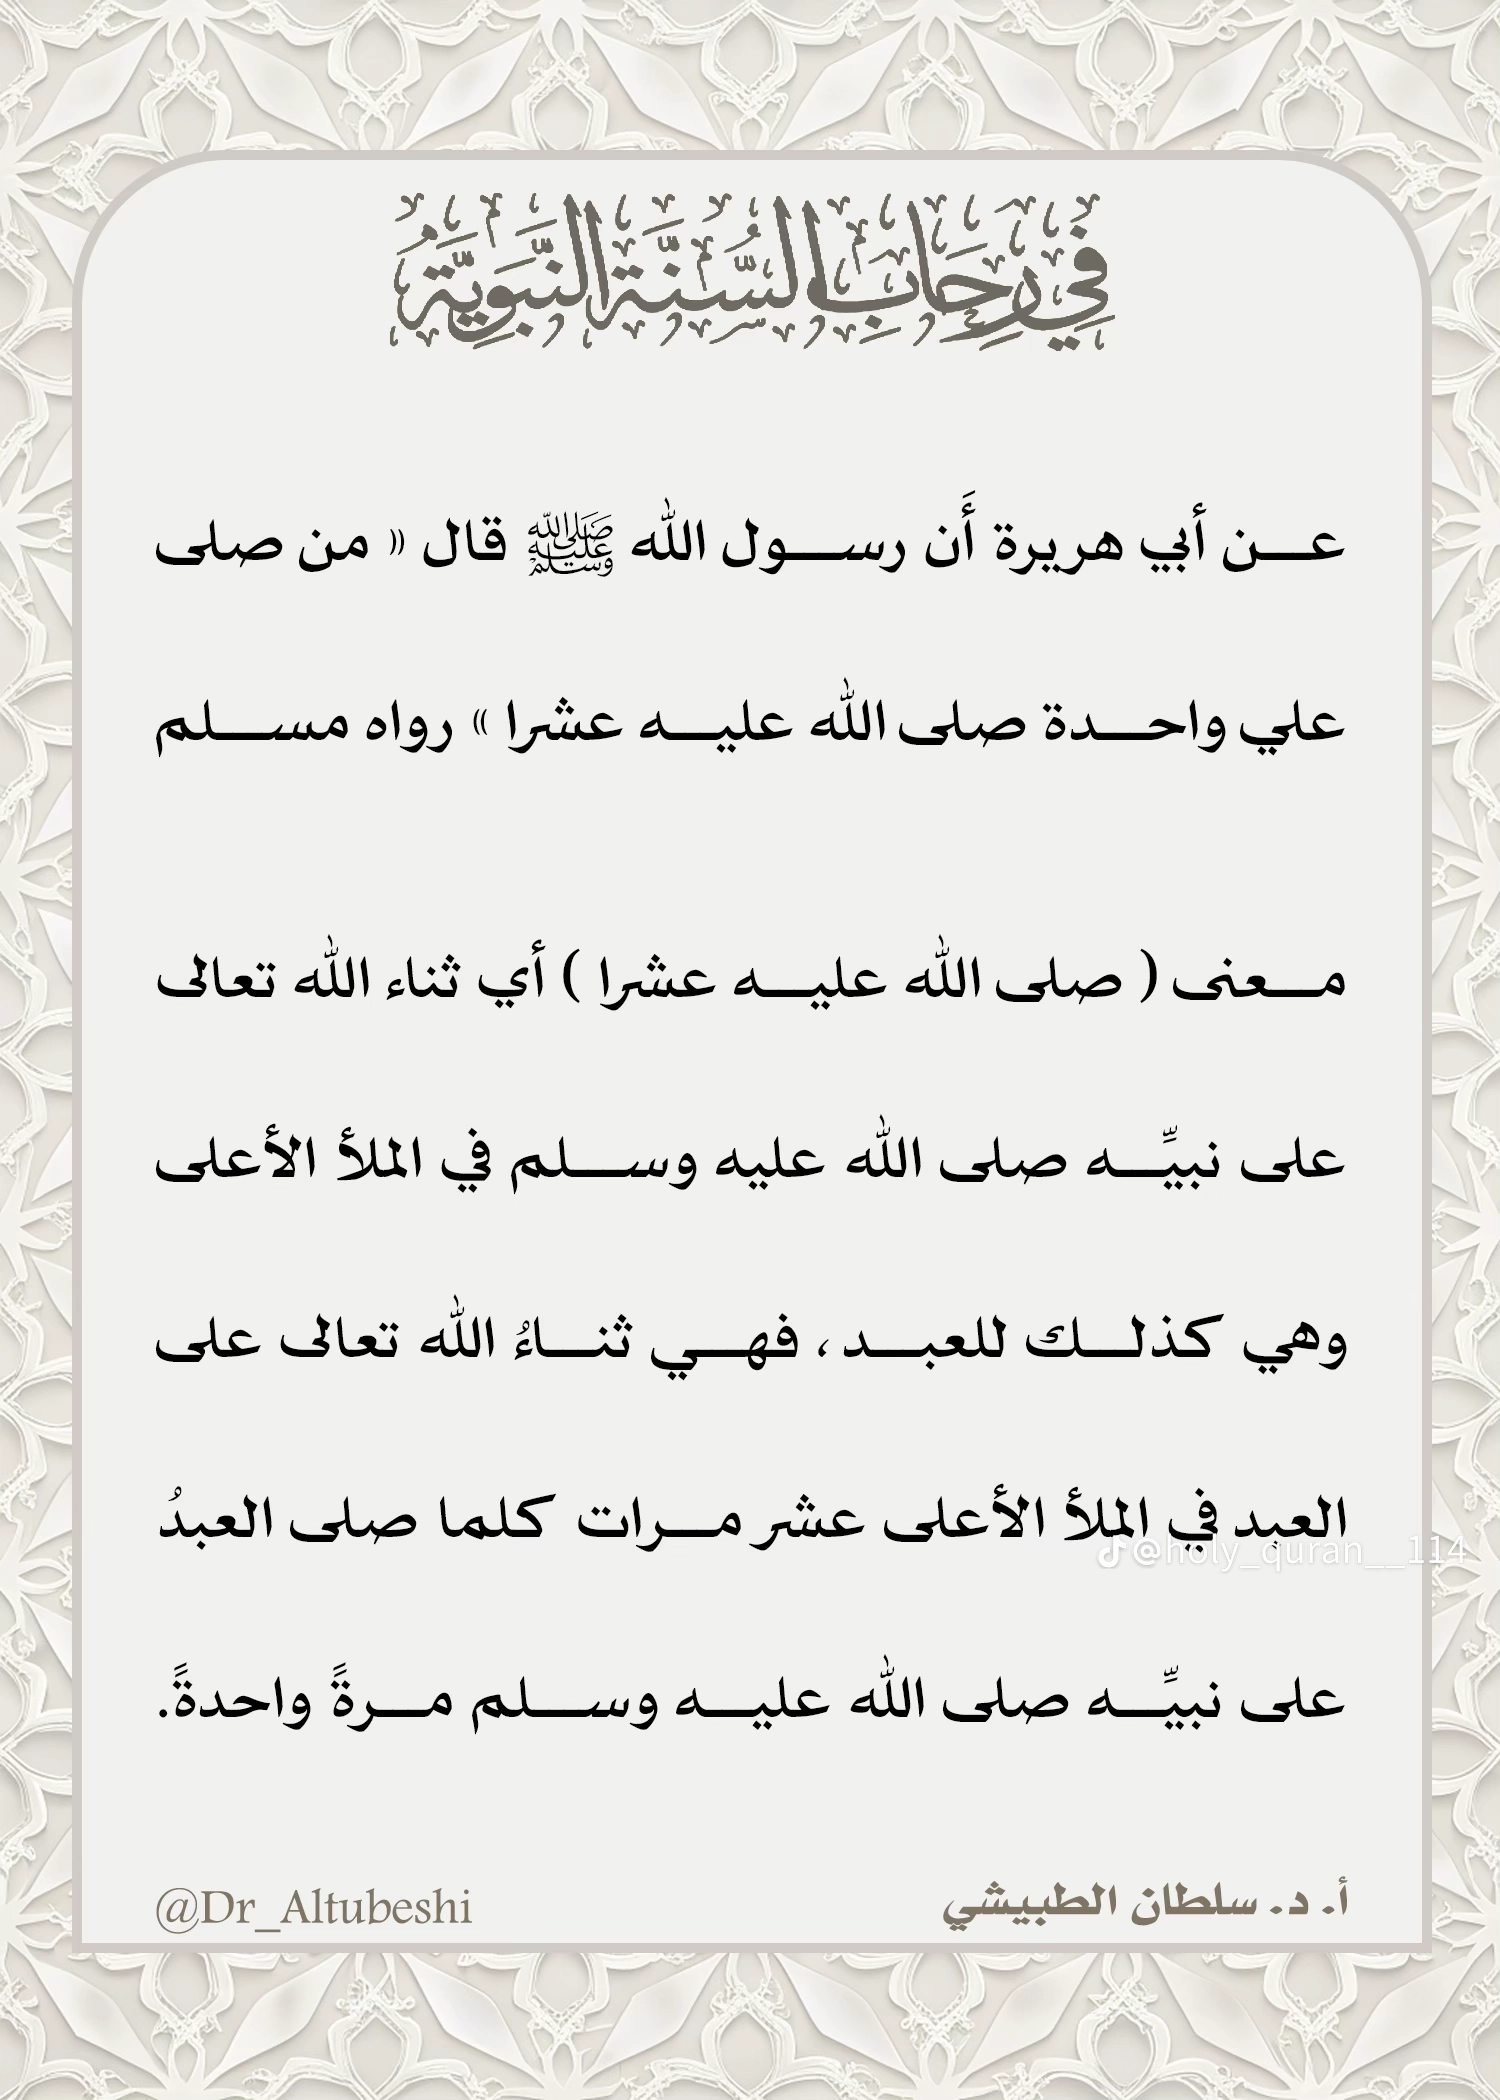 في رِحَابِ السُّنَّة النَّبَوِيَّة
عن أبي هريرة أَن رسول الله ﷺ قال « من صلى
علي واحدة صلى الله عليه عشرا » رواه مسلم
معنى ( صلى الله عليه عشرا ) أي ثناء الله تعالى
على نبيِّه صلى الله عليه وسلم في الملأ الأعلى
وهي كذلك للعبد ، فهي ثناءُ الله تعالى على
العبد في الملأ الأعلى عشر مرات كلما صلى العبدُ
@holy_quran__114
على نبيِّه صلى الله عليه وسلم مرةً واحدةً.
أ. د. سلطان الطبيشي
@Dr_Altubeshi